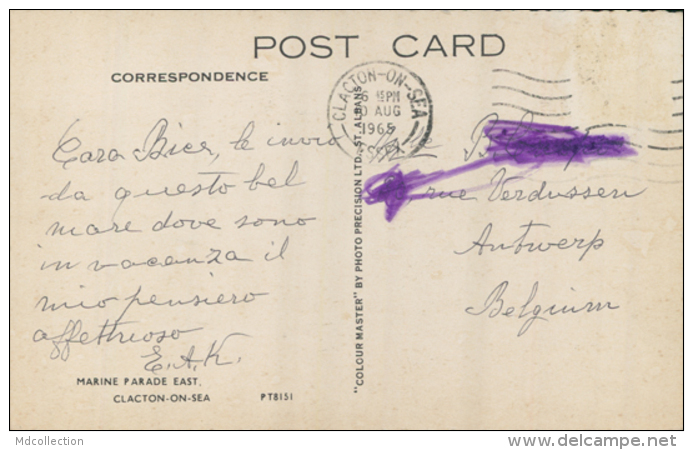 POST CARD
CORRESPONDENCE
CLACTON-ON-SEA
PM
AUG
1965
Cara Bice, le invio
da questo bel
mare dove sono
in vacanza il
mio pensiero
affettuoso
E.A.K.
rue Verdussen
Antwerp
Belgium
"COLOUR MASTER" BY PHOTO PRECISION LTD., ST. ALBANS
MARINE PARADE EAST,
CLACTON-ON-SEA
PT8151
Mdcollection
delcampe.net